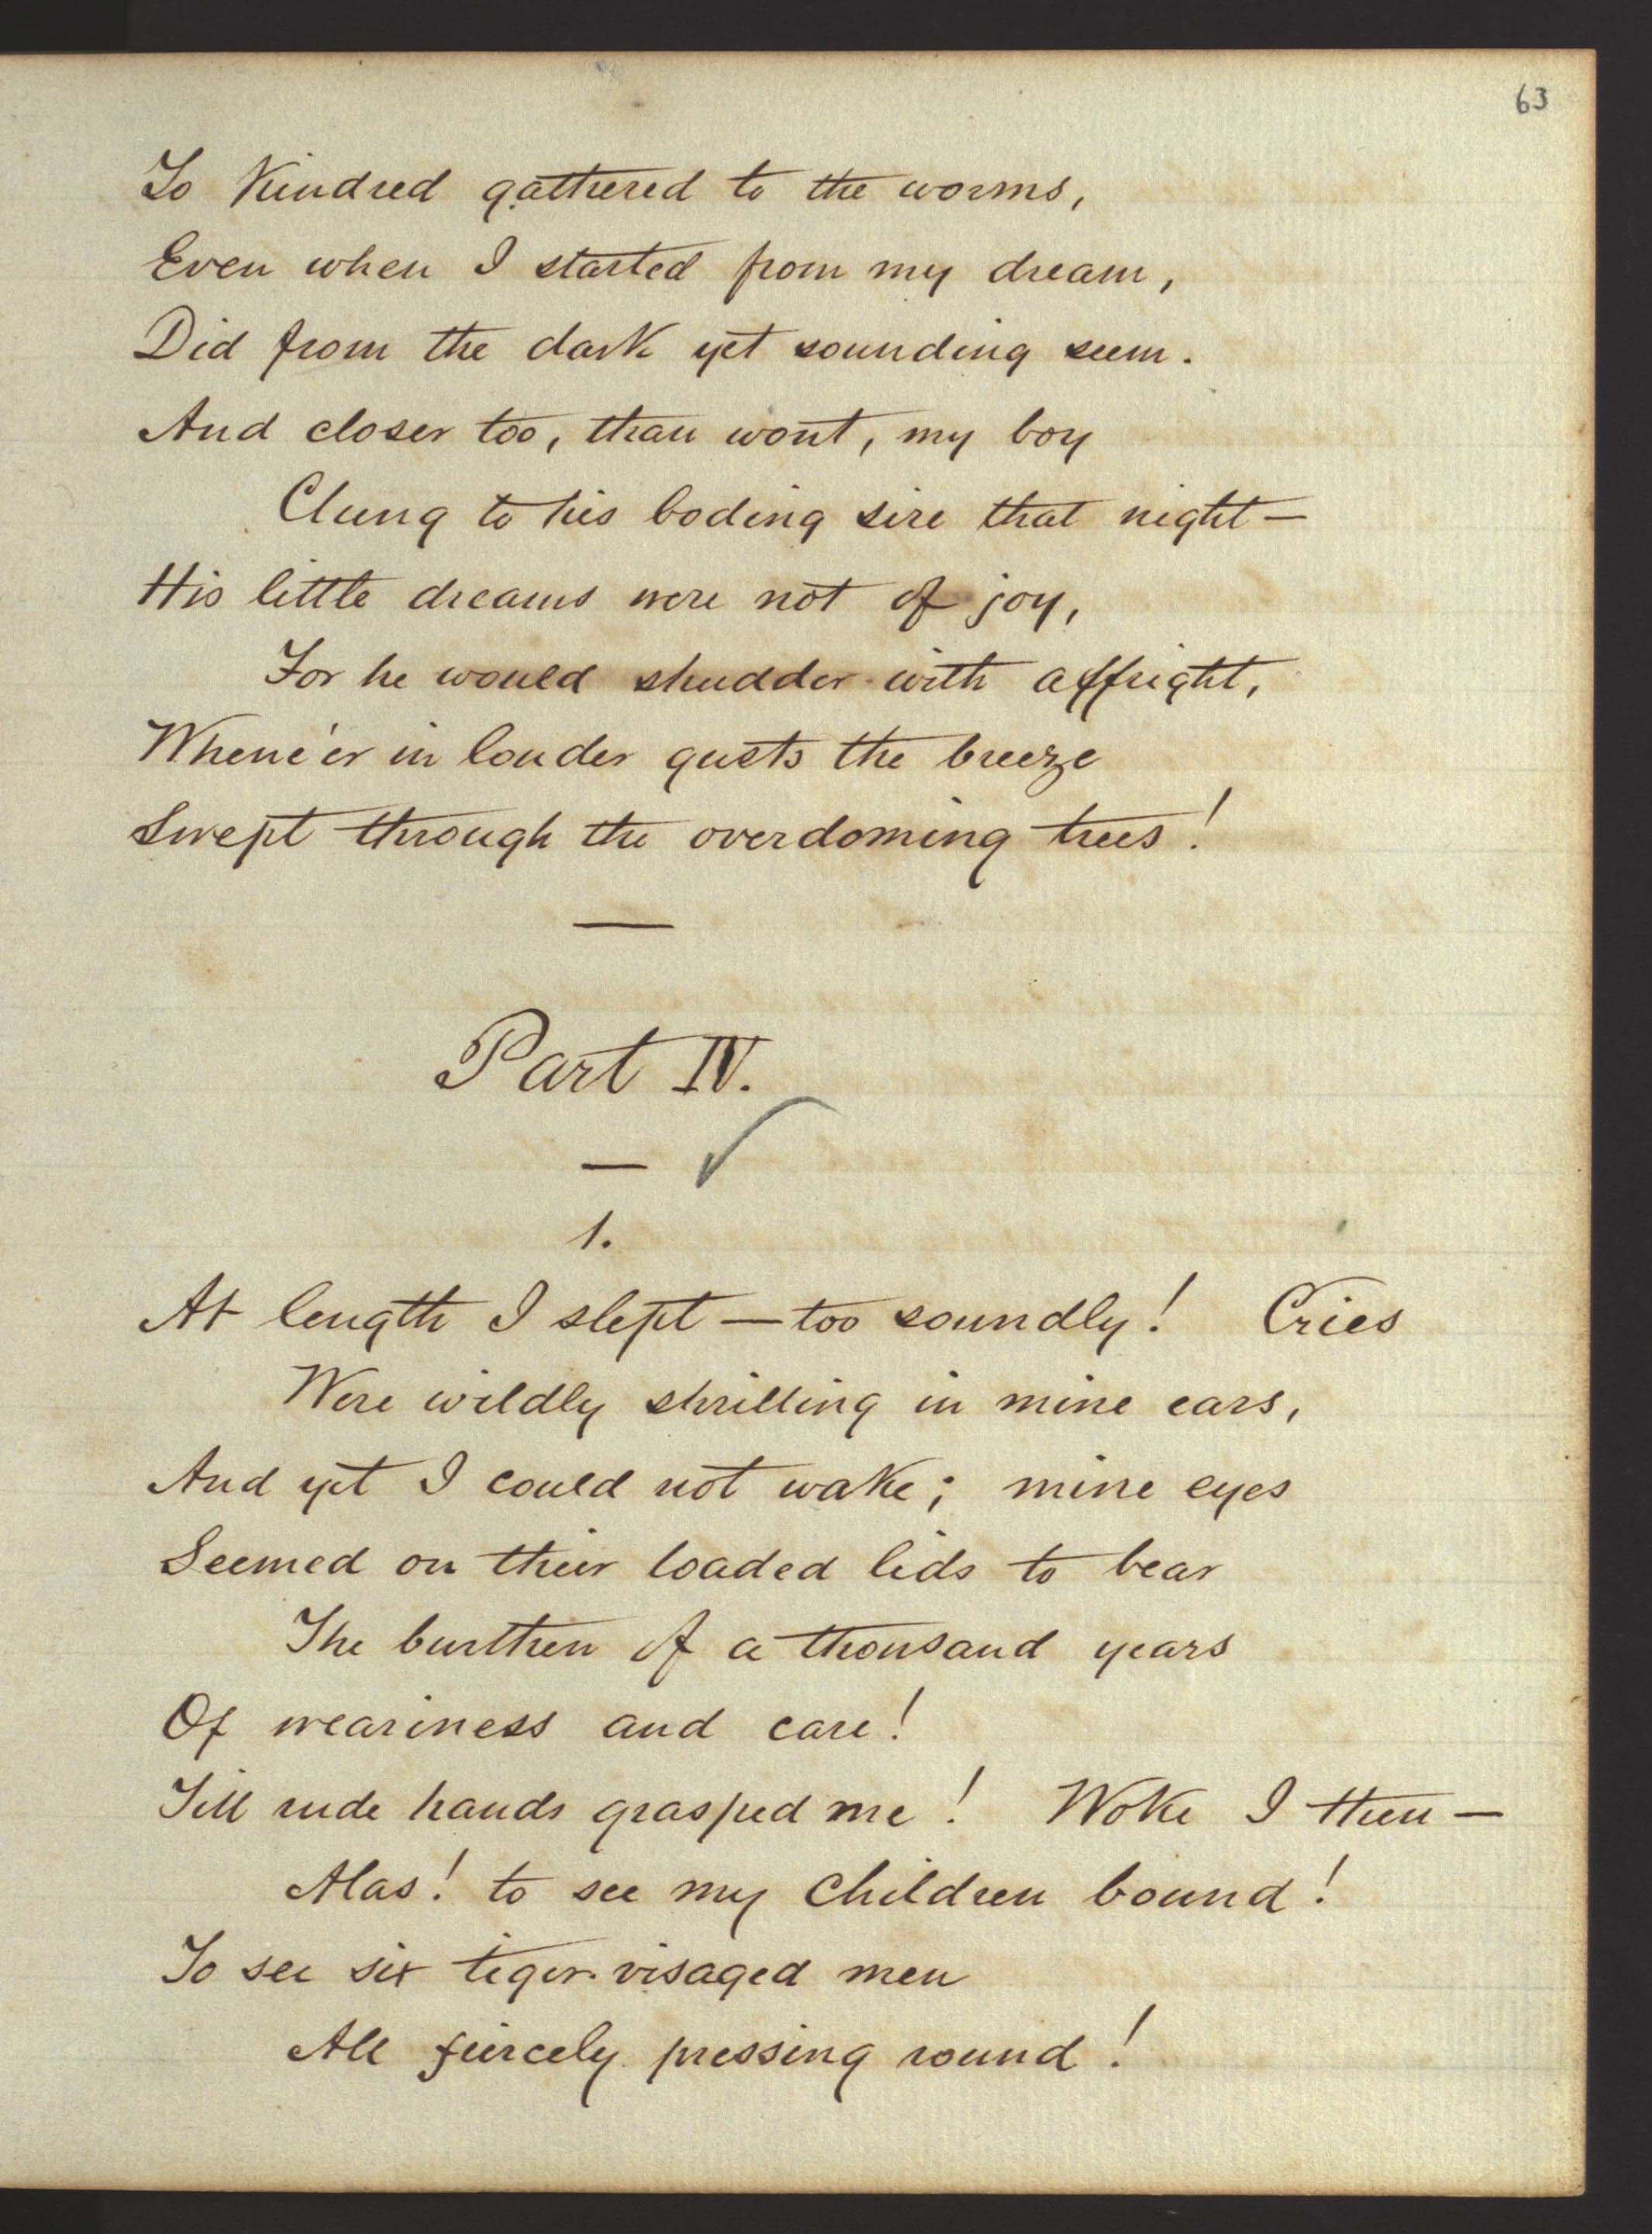 63
To Kindred gathered to the worms,
Even when I started from my dream,
Did from the dark yet sounding seem.
And closer too, than wont, my boy
Clung to his boding sire that night —
His little dreams were not of joy,
For he would shudder with affright,
Whene'er in louder gusts the breeze
Swept through the overdoming trees!
Part IV.
1.
At length I slept — too soundly! Cries
Were wildly shrilling in mine ears,
And yet I could not wake; mine eyes
Seemed on their loaded lids to bear
The burthen of a thousand years
Of weariness and care!
Till rude hands grasped me! Woke I then —
Alas! to see my Children bound!
To see six tiger-visaged men
All fiercely pressing round!